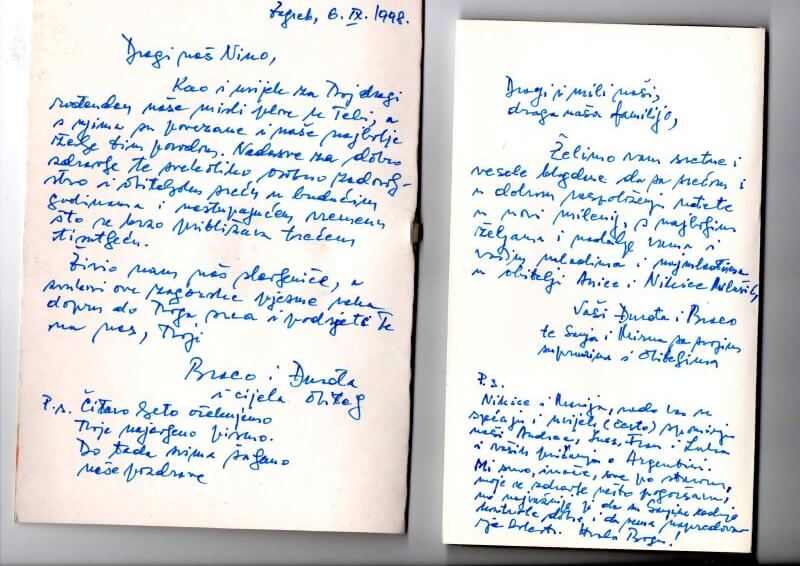 Zagreb, 6. IX. 1998.
Dragi naš Nino,
Kao i uvijek za Tvoj dragi
rođendan naše misli plove k Tebi, a
s njima su povezane i naše najbolje
želje tim povodom. Nadasve za dobro
zdravlje te osobno zadovolj-
stvo i obiteljsku sreću u budućim
godinama i nastupajućem vremenu
što se brzo približava trećem
Živio nam naš slavljeniče, a
zvukovi ove zagorske pjesme neka
dopru do Tvoga srca i podsjete Te
na nas, Tvoji
Braco i Đurđa
i cijela obitelj
P.s. Čitavo ljeto očekujemo
Tvoje najavljeno pismo.
Do tada svima šaljemo
naše pozdrave
Dragi i mili naši,
draga naša familijo,
Želimo vam sretne i
vesele blagdane da sa srećom i
u dobrom raspoloženju uđete
u novi milenij, s najboljim
željama i nadalje vama i
vašim mladima i najmlađima
u obitelji Anice i Nikice
Vaši Đurđa i Braco
te Sanja i Mirna sa svojim
supruzima i obiteljima
P.s.
Nikice i Marija, rado vas se
sjećaju i uvijek (često) spominju
naši Andrea, Fran i Luka
i vašim pričanja o Argentini.
Mi smo, inače, sve po starom,
moje se zdravlje nešto pogoršava,
no najvažnije je da su Sanjine zadnje
kontrole dobre i da nema napredova-
nja bolesti. Hvala Bogu!